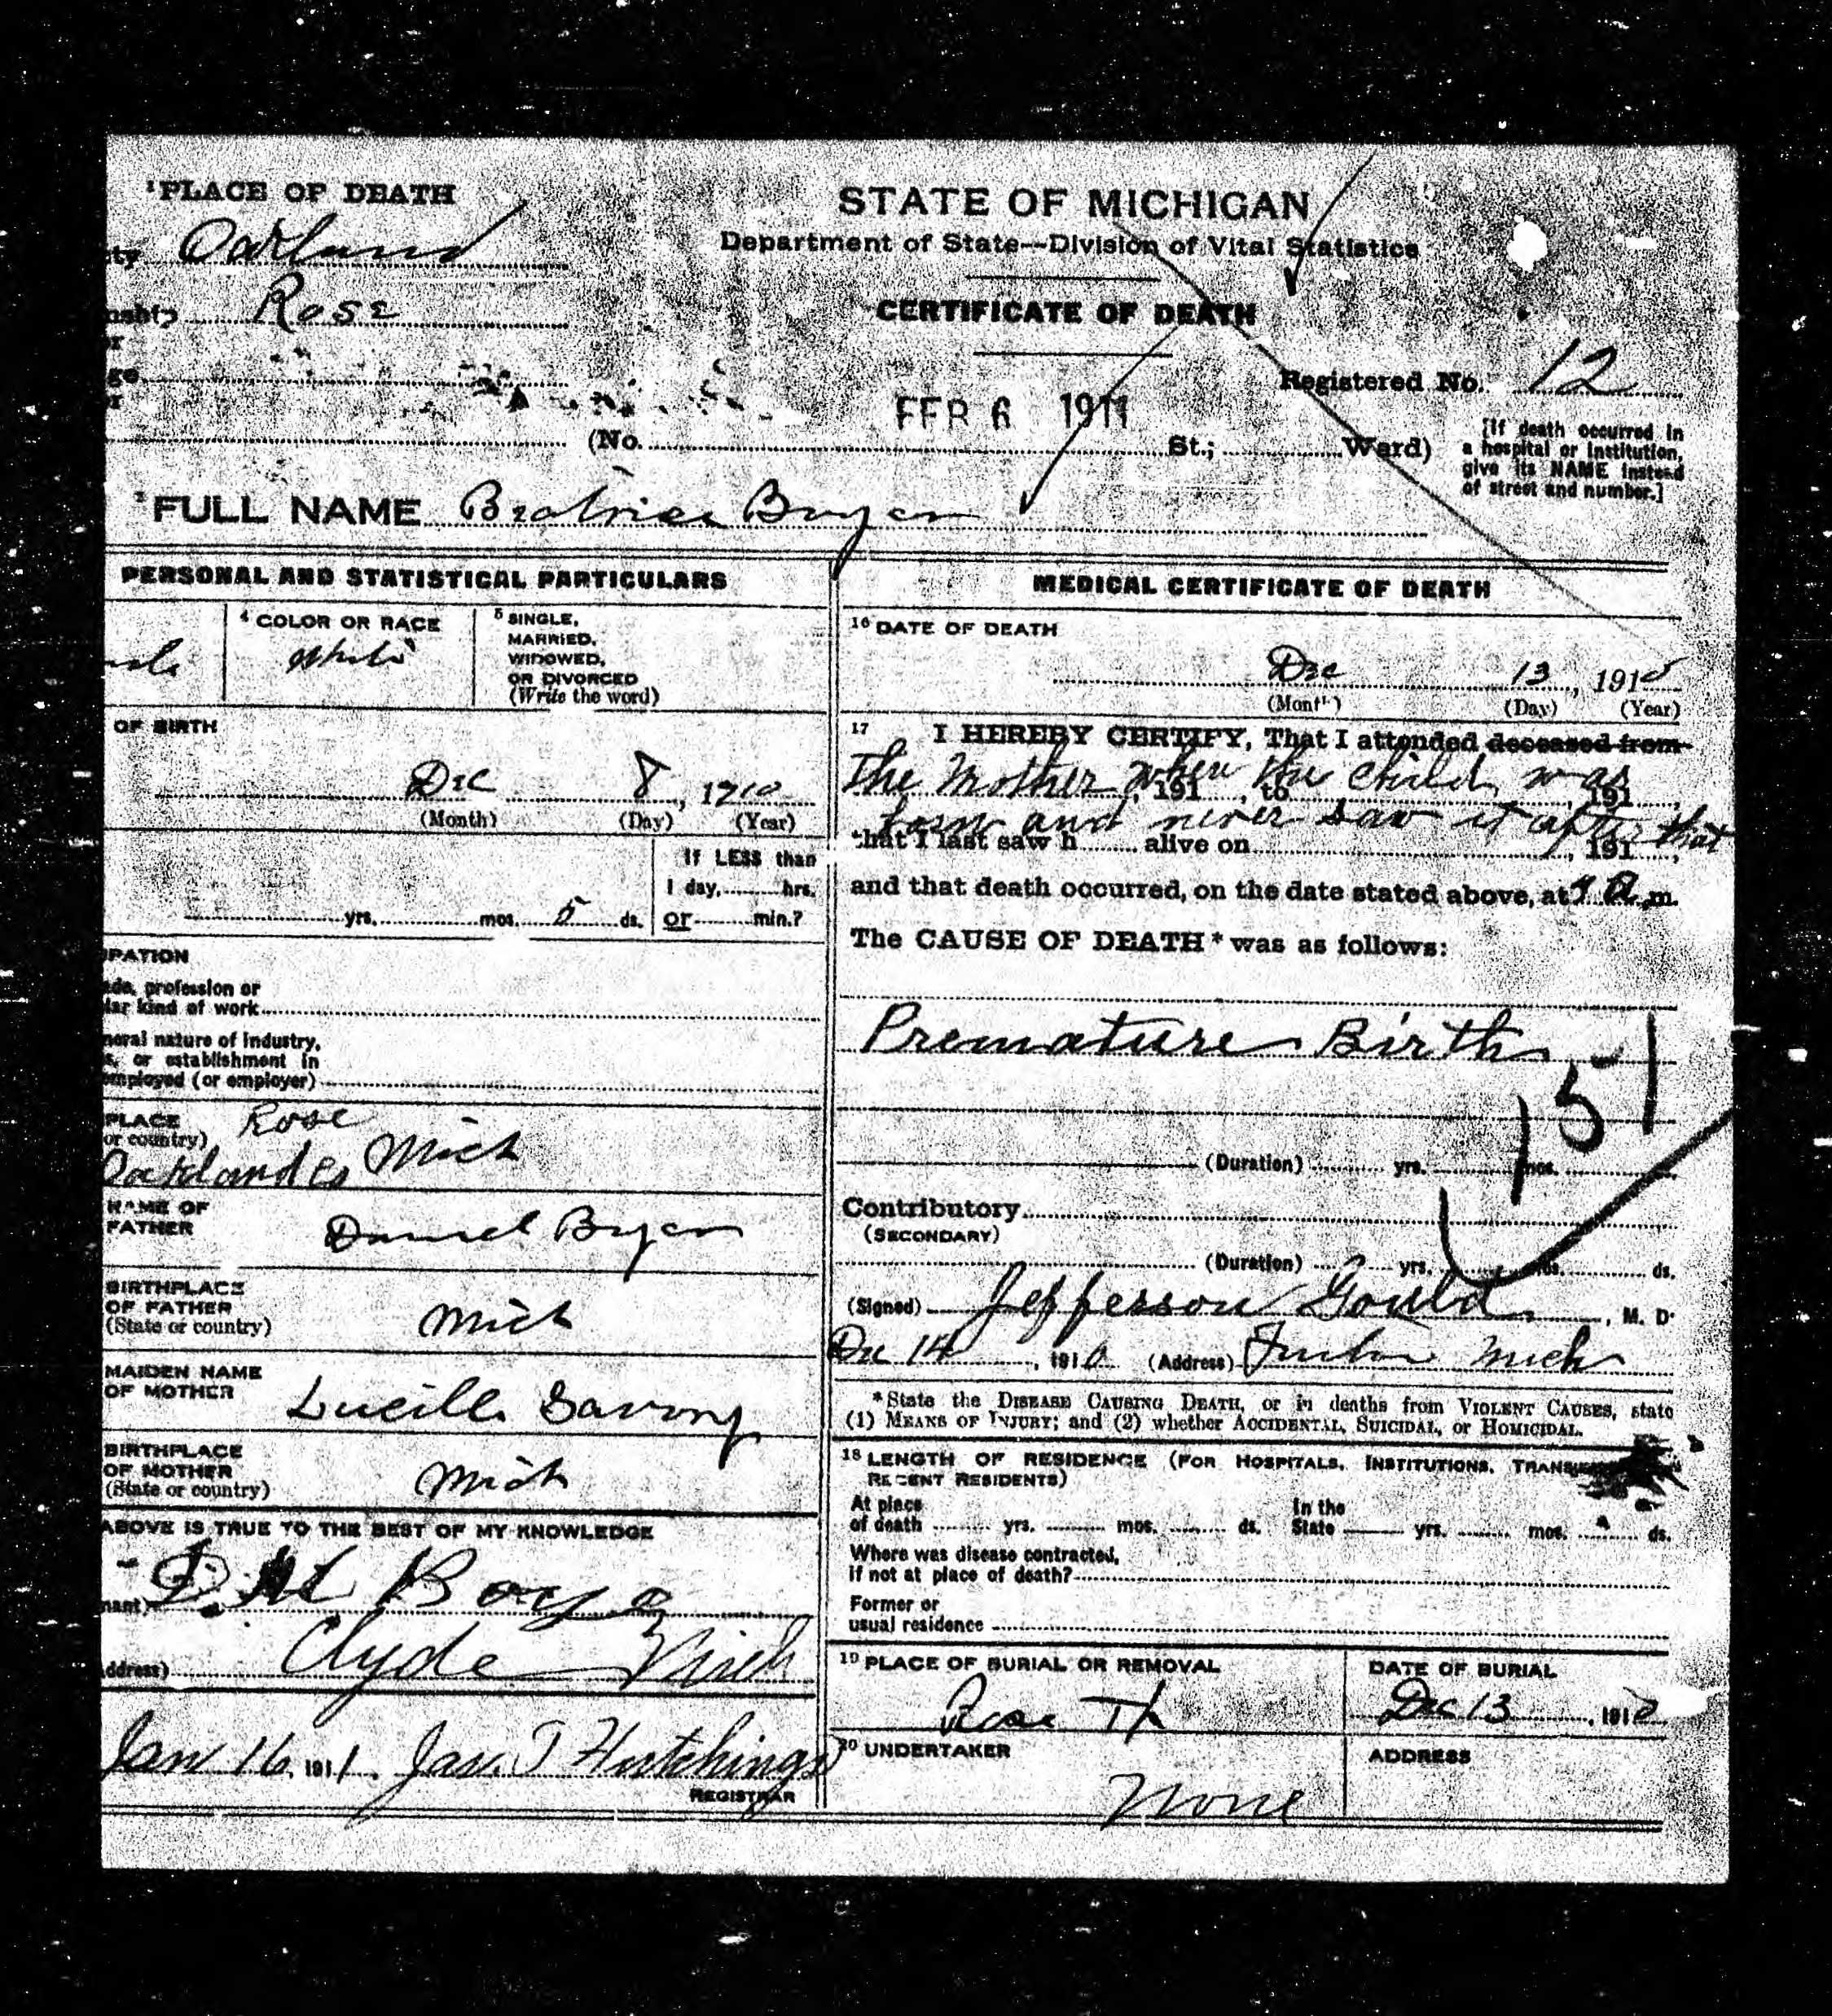 ¹PLACE OF DEATH
STATE OF MICHIGAN
Department of State—Division of Vital Statistics
CERTIFICATE OF DEATH
ty Oakland
nship Rose
r
ge
r
FEB 6 1911
Registered No. 12
(No. St.; Ward)
[If death occurred in
a hospital or institution,
give its NAME instead
of street and number.]
²FULL NAME Beatrice Boyer
PERSONAL AND STATISTICAL PARTICULARS
⁴ COLOR OR RACE
White
⁵ SINGLE,
MARRIED,
WIDOWED,
OR DIVORCED
(Write the word)
OF BIRTH
Dec 8, 1910
(Month) (Day) (Year)
yrs. mos. 5 ds.
If LESS than
1 day, hrs.
or min.?
PATION
ade, profession or
lar kind of work
neral nature of industry,
s, or establishment in
employed (or employer)
PLACE
or country)
Rose
Oakland Co Mich
NAME OF
FATHER
Daniel Boyer
BIRTHPLACE
OF FATHER
(State or country)
Mich
MAIDEN NAME
OF MOTHER
Lucille Savory
BIRTHPLACE
OF MOTHER
(State or country)
Mich
ABOVE IS TRUE TO THE BEST OF MY KNOWLEDGE
mant)
ddress) Clyde Mich
Jan 16, 1911. Jas. T Hutchings
REGISTRAR
MEDICAL CERTIFICATE OF DEATH
¹⁶ DATE OF DEATH
Dec 13, 1910
(Month) (Day) (Year)
¹⁷ I HEREBY CERTIFY, That I attended deceased from
The Mother when the child was
, 191 , to , 191 ,
born and never saw it after that
that I last saw h alive on , 191 ,
and that death occurred, on the date stated above, at a m.
The CAUSE OF DEATH* was as follows:
Premature Birth
151
(Duration) yrs. mos.
Contributory
(SECONDARY)
(Duration) yrs. mos. ds.
(Signed) Jefferson Gould, M. D.
Dec 14, 1910 (Address) Fenton Mich
*State the DISEASE CAUSING DEATH, or in deaths from VIOLENT CAUSES, state
(1) MEANS OF INJURY; and (2) whether ACCIDENTAL, SUICIDAL, or HOMICIDAL.
¹⁸ LENGTH OF RESIDENCE (FOR HOSPITALS, INSTITUTIONS, TRANS
RECENT RESIDENTS)
At place
of death yrs. mos. ds.
In the
State yrs. mos. ds.
Where was disease contracted,
if not at place of death?
Former or
usual residence
¹⁹ PLACE OF BURIAL OR REMOVAL
Rose
DATE OF BURIAL
Dec 13, 1910
²⁰ UNDERTAKER
None
ADDRESS